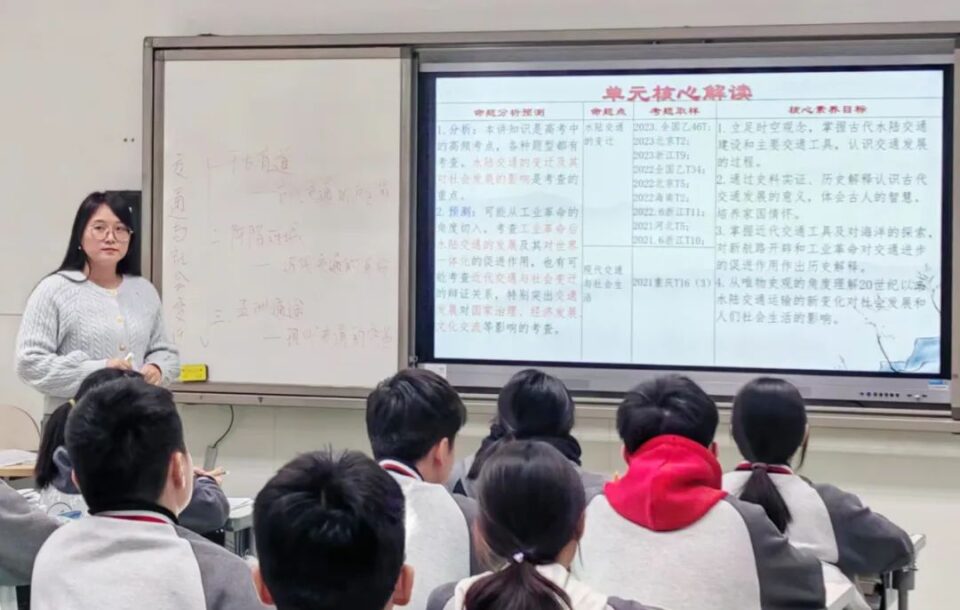 单元核心解读
命题分析预测
1. 分析：本讲知识是高考中
的高频考点，各种题型都有
考查。水陆交通的变迁及其
对社会发展的影响是考查的
重点。
2. 预测：可能从工业革命的
角度切入，考查工业革命后
水陆交通的发展及其对世界
一体化的促进作用。也有可
能考查近代交通与社会变迁
的辩证关系，特别突出交通
发展对国家治理、经济发展、
文化交流等影响的考查。
命题点
水陆交通
的变迁
现代交通
与社会生
活
考题取样
2023.全国乙46T；
2023北京T2；
2023浙江T9；
2022全国乙T34；
2022北京T5；
2022海南T2；
2022.6浙江T11；
2021河北T5；
2021.6浙江T10；
2021重庆T16（3）
核心素养目标
1. 立足时空观念，掌握古代水陆交通
建设和主要交通工具，认识交通发展
的过程。
2. 通过史料实证、历史解释认识古代
交通发展的意义，体会古人的智慧，
培养家国情怀。
3. 掌握近代交通工具及对海洋的探索，
对新航路开辟和工业革命对交通进步
的促进作用作出历史解释。
4. 从唯物史观的角度理解20世纪以
水陆交通运输的新变化对社会发展和
人们社会生活的影响。